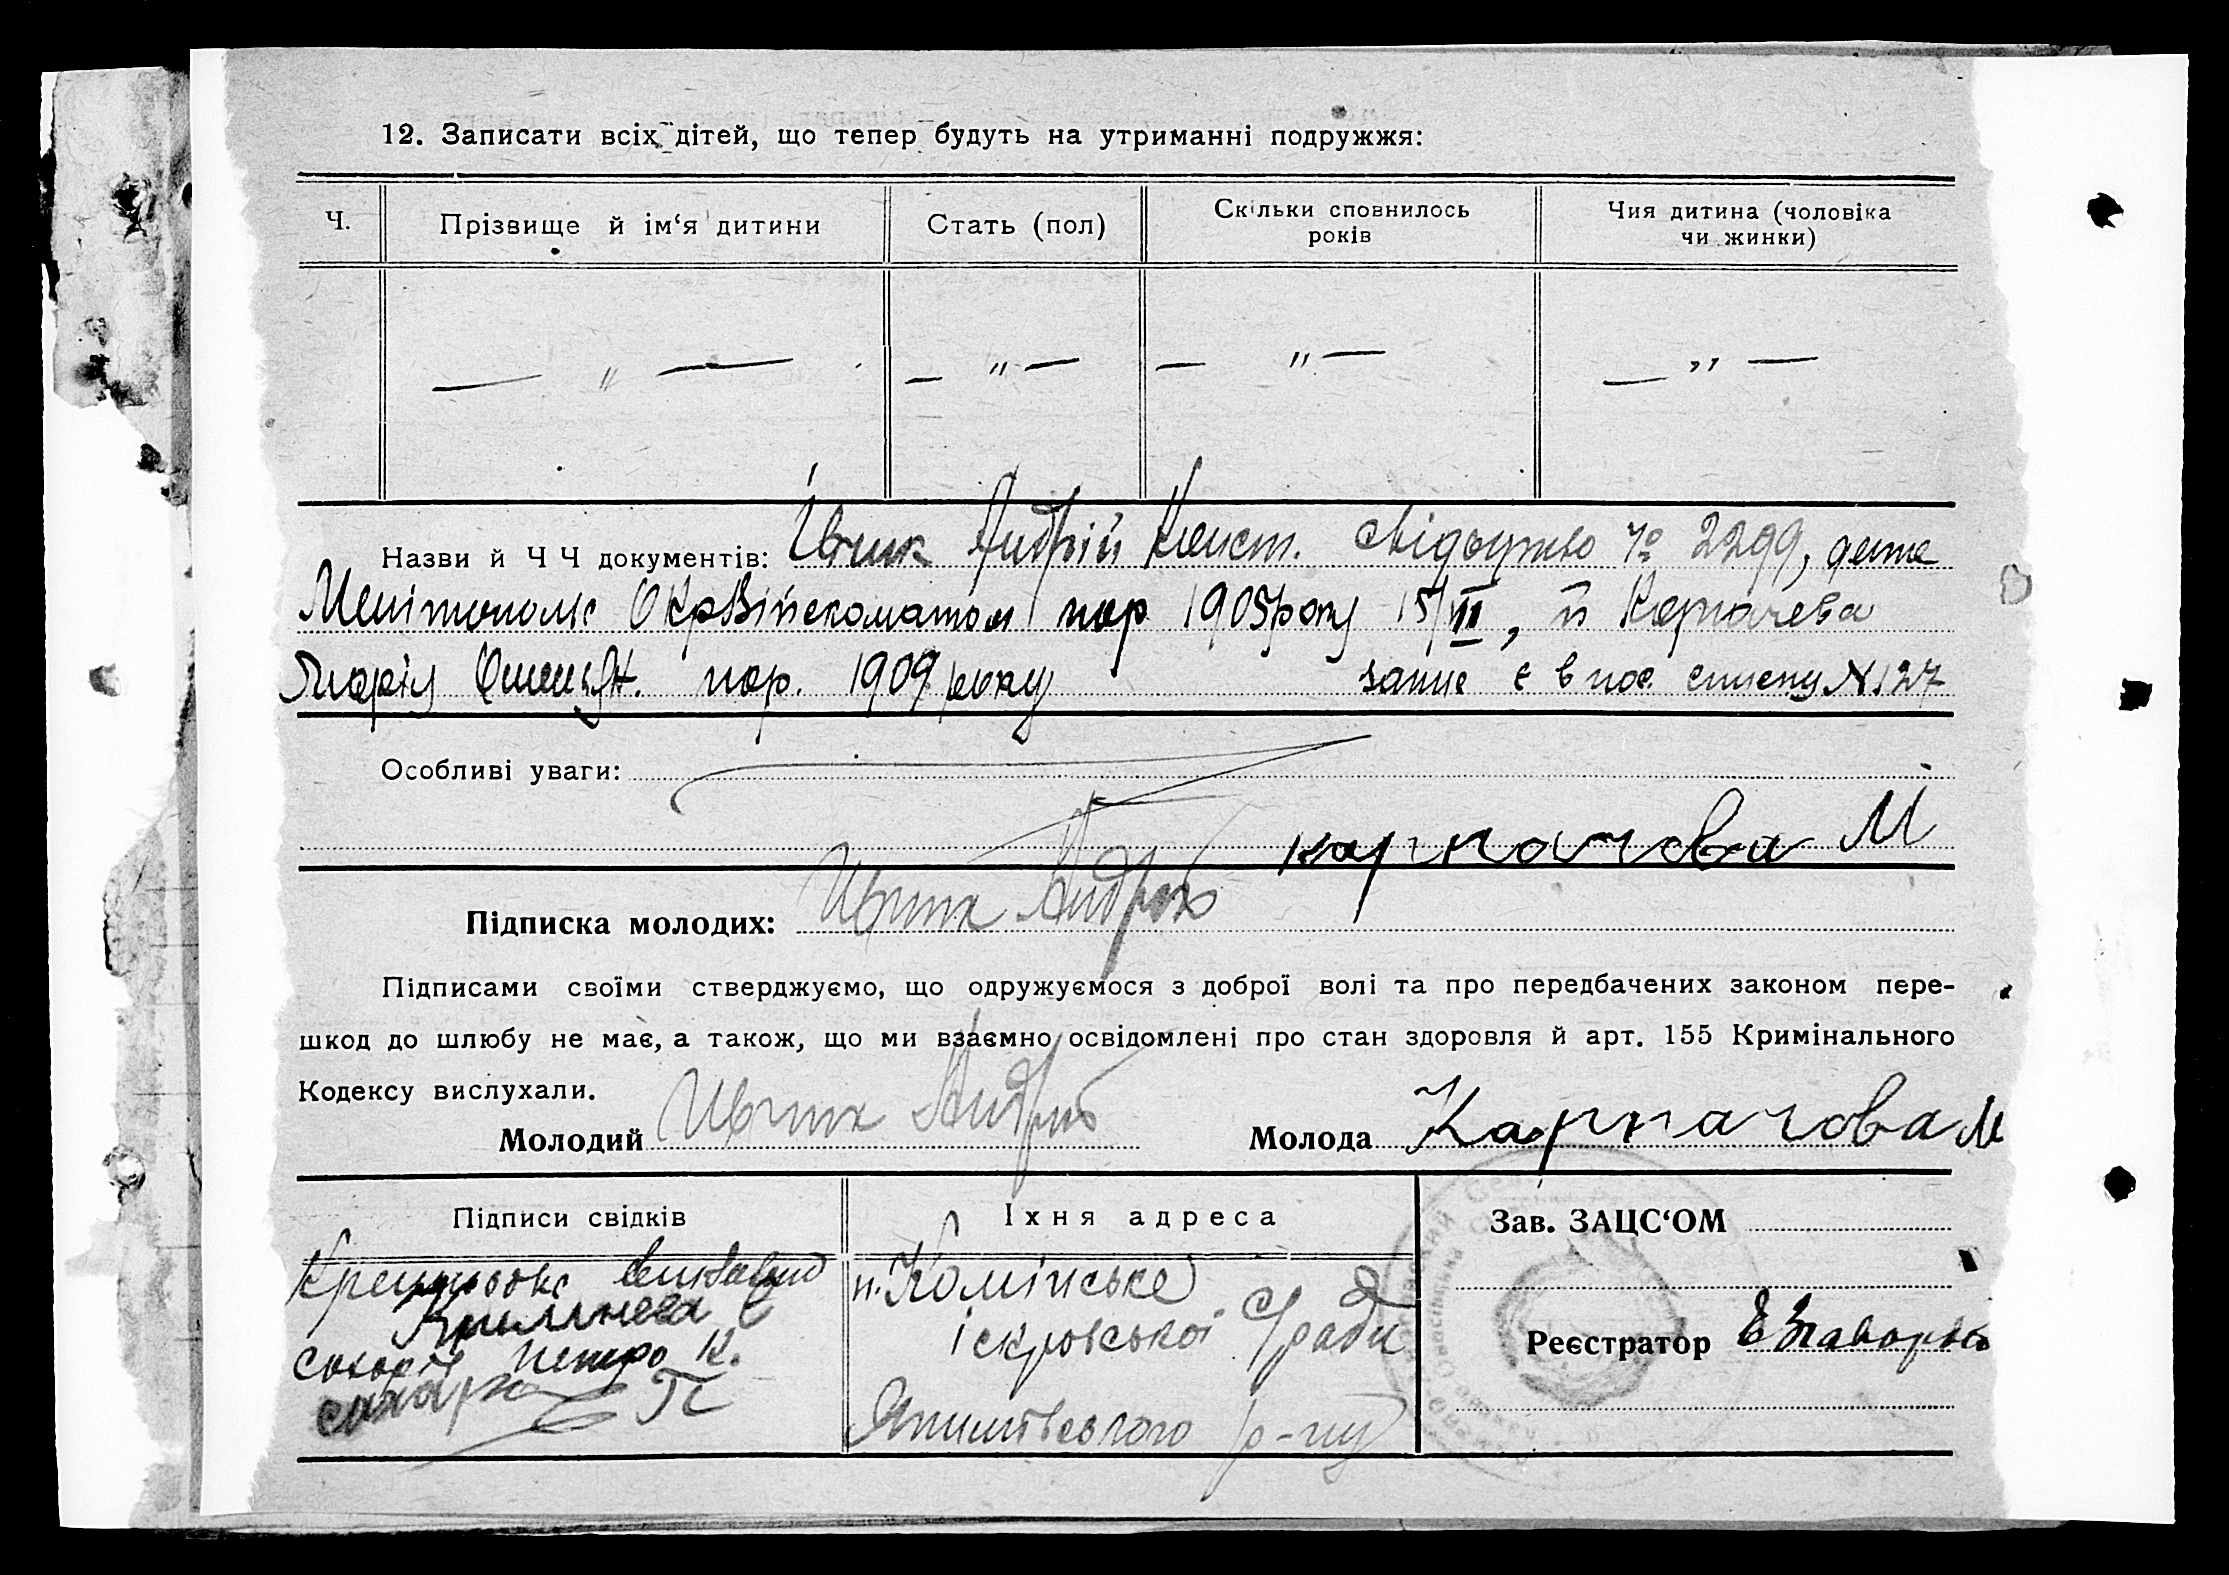 12. Записати всіх дітей, що тепер будуть на утриманні подружжя:
Ч. Прізвище й ім‘я дитини Стать (пол) Скільки сповнилось років Чия дитина (чоловіка чи жинки)
— „ — — „ — — „ — — „ —
Назви й Ч Ч документів: Івчик Андрій Конст. свідоцтво № 2299, дане
Мелітопольс ОкрВійськоматом нар 1905 року 15/III, й Карпачева
Марія нар. 1909 року запис є в пос. списку № 127
Особливі уваги:
Карпачова М
Підписка молодих: Ивчик Андрей
Підписами своїми стверджуємо, що одружуємося з доброї волі та про передбачених законом пере-
шкод до шлюбу не має, а також, що ми взаємно освідомлені про стан здоровля й арт. 155 Кримінального
Кодексу вислухали.
Молодий Ивчик Андрей Молода Карпачова М
Підписи свідків Їхня адреса Зав. ЗАЦС‘ОМ
п. Комінське
іскровської с/ради
Реєстратор
Петро К.
р-ну